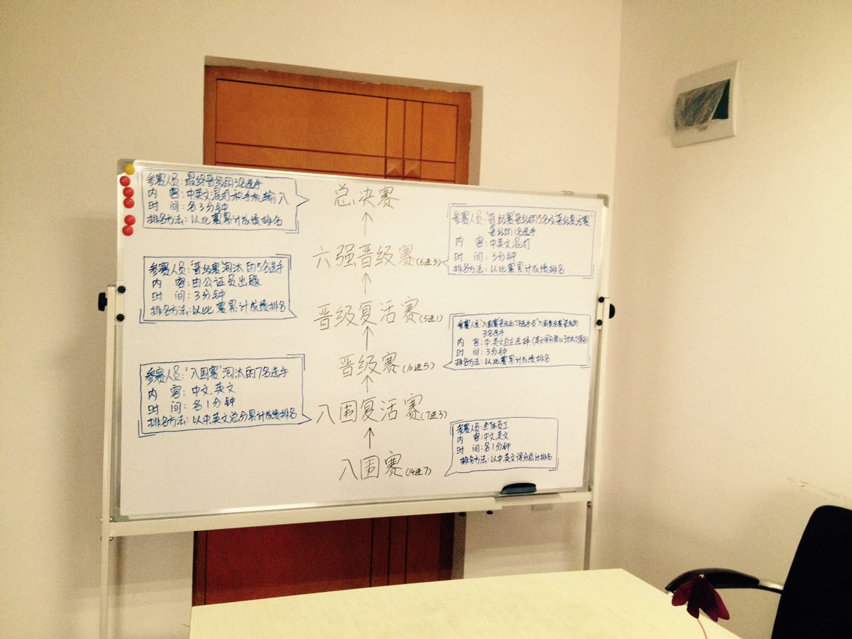 总决赛
参赛人员:最终晋级的3名选手
内 容:中英文混打和手机输入
时 间:各3分钟
排名方法:以此累计成绩排名
六强晋级赛(6进3)
参赛人员:"晋级赛"晋级的5名及"晋级复活赛"
晋级的1名选手
内 容:中英文混打
时 间:3分钟
排名方法:以此累计成绩排名
晋级复活赛(5进1)
参赛人员:"晋级赛"淘汰的5名选手
内 容:由公证员出题
时 间:3分钟
排名方法:以此累计成绩排名
晋级赛(10进5)
参赛人员:"入围赛"晋级的7名选手及"入围复活赛"晋级的
3名选手
内 容:中英文自主选择
时 间:3分钟
排名方法:以此累计成绩排名
入围复活赛(7进3)
参赛人员:"入围赛"淘汰的7名选手
内 容:中文、英文
时 间:各1分钟
排名方法:以中英文总分累计成绩排名
入围赛(14进7)
参赛人员:全体员工
内 容:中文、英文
时 间:各1分钟
排名方法:以中英文得分总计排名